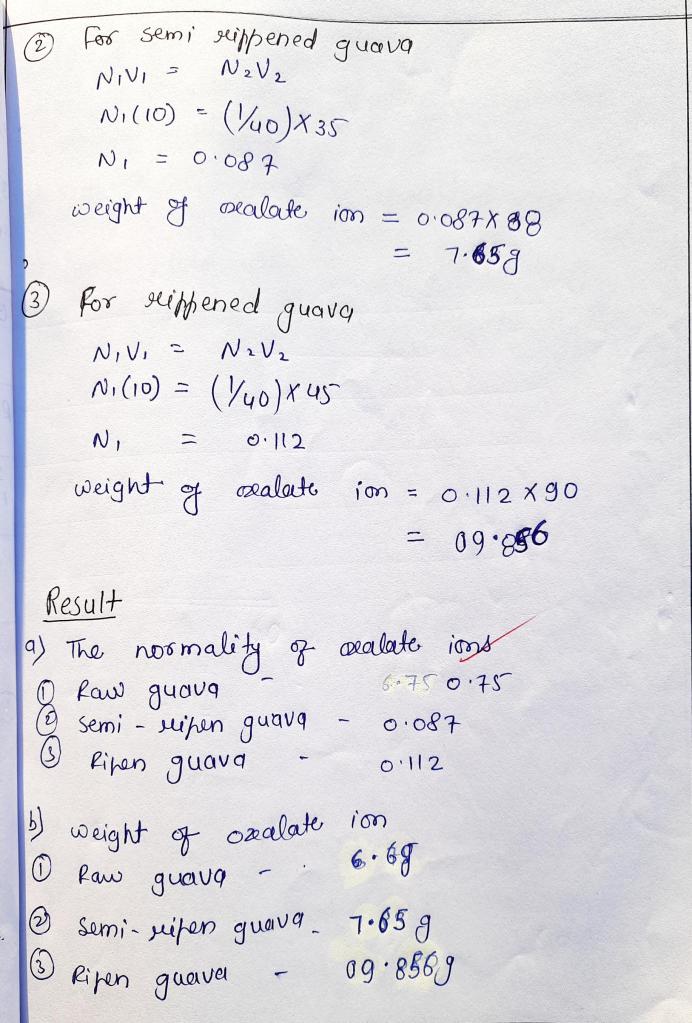 ② For semi rippened guava
N₁V₁ = N₂V₂
N₁(10) = (1/40)X35
N₁ = 0.087
weight of oxalate ion = 0.087X88
= 7.65g
③ For rippened guava
N₁V₁ = N₂V₂
N₁(10) = (1/40)X45
N₁ = 0.112
weight of oxalate ion = 0.112 X90
= 09.856
Result
a) The normality of oxalate ions
① Raw guava - 0.75
② semi-ripen guava - 0.087
③ Ripen guava - 0.112
b) weight of oxalate ion
① Raw guava - 6.6g
② Semi-ripen guava - 7.65 g
③ Ripen guava - 09.856g